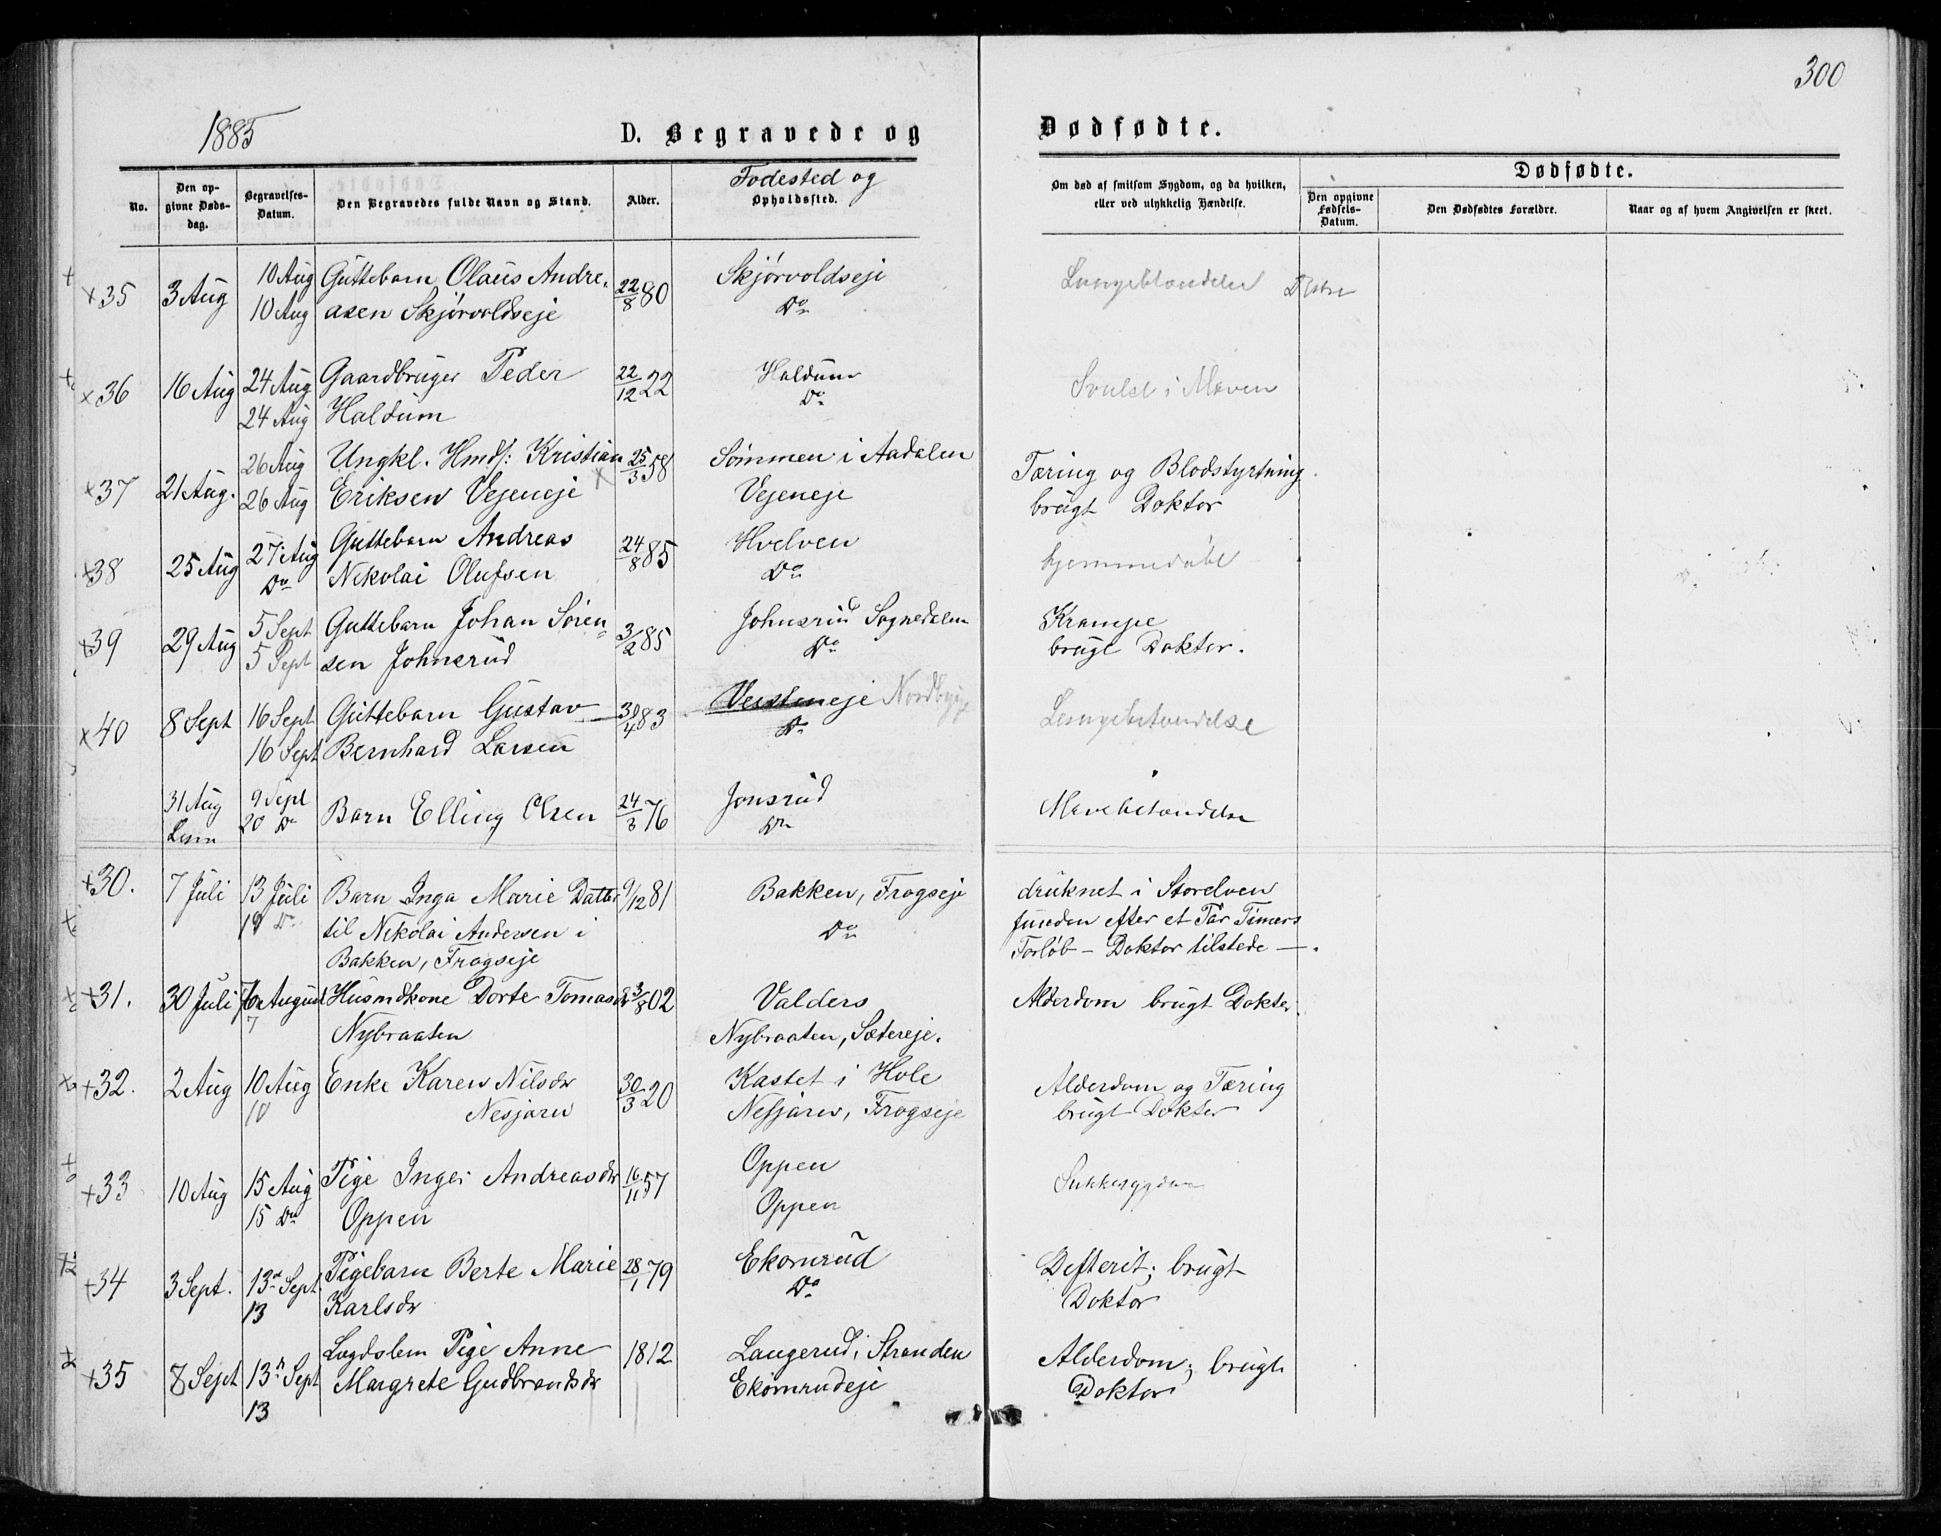 300
1885
D. Begravede og Dødfødte.
No.
Den opgivne Dødsdag.
Begravelses-Datum.
Den Begravedes fulde Navn og Stand.
Alder.
Fødested og
Opholdssted.
Om død af smitsom Sygdom, og da hvilken,
eller ved ulykkelig Hændelse.
Dødfødte.
Den opgivne Fødsels-Datum.
Den Dødfødtes Forældre.
Naar og af hvem Angivelsen er skeet.
+35 3 Aug 10 Aug Guttebarn Olaus Andre- 22/8 80 Skjørvoldseje Lungebtændelse
10 Aug asen Skjørvoldseje Do
+36 16 Aug 24 Aug Gaardbruger Peder 22/12 22 Haldum Svulst i Maven
24 Aug Haldum Do
+37 21 Aug. 26 Aug Ungkl. Hmdf: Kristian 25/3 58 Sømmen i Aadalen Tæring og Blodstyrtning
26 Aug Eriksen Vejeneje Vejeneje brugt Doktor
+38 25 Aug 27 Aug Guttebarn Andreas 24/8 85 Hvelven hjemmedøbt
Do Nikolai Olufsen Do
+39 29 Aug 5 Sept Guttebarn Johan Søren- 3/2 85 Johnsrud Sognedalen Krampe
5 Sept sen Johnsrud Do brugt Doktor.
+40 8 Sept 16 Sept Guttebarn Gustav 30/4 83 Vesteneje Nordbyeje Lungebetændelse
16 Sept Bernhard Larsen Do
31 Aug 9 Sept Barn Elling Olsen 24/3 76 Jonsrud Mavebetændelse
20 Do Do
+30. 7 Juli 13 Juli Barn Inga Marie Datter 9/12 81 Bakken, Frogseje druknet i Storelven
19 Do til Nikolai Andersen i Do funden efter et Par Timers
Bakken, Frogseje Forløb — Doktor tilstede —.
+31. 30 Juli 6 August Husmdkone Dorte Tomasdr 3/8 02 Valders Alderdom brugt Doktor.
7 Nybraaten Nybraaten, Sætereje.
+32. 2 Aug 10 Aug Enke Karen Nilsdr 30/3 20 Kastet i Hole Alderdom og Tæring
10 Nesjarn Nesjarn, Frogseje brugt Doktor
+33 10 Aug 15 Aug Pige Inger Andreasdr 16/11 57 Oppen Sukkersygdom
15 Do Oppen Oppen
+34 3 Sept. 13de Sept Pigebarn Berte Marie 28/1 79 Ekornrud Defterit; brugt
13 Karlsdr Do Doktor
+35 8 Sept 13de Sept Lægdslem Pige Anne 1812 Laugerud, Stranden Alderdom; brugt
13 Margrete Gudbrandsdr Ekornrudeje Doktor